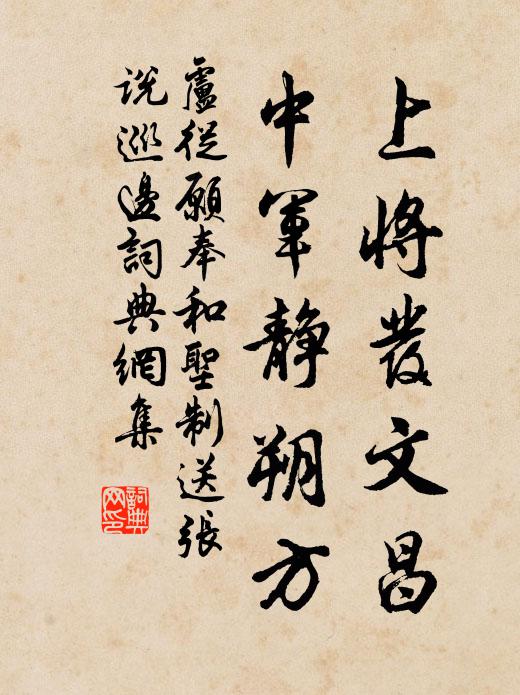 上將發文昌
中軍靜朔方
盧從願奉和聖制送張
說巡邊詞典網集
詞典
网印